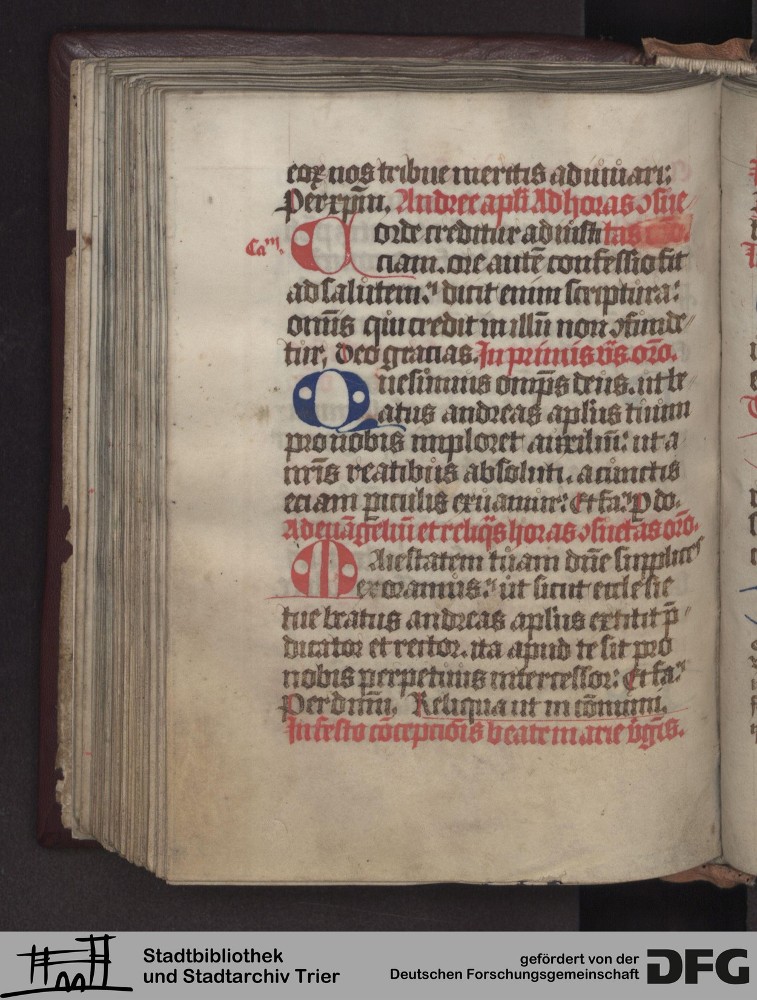 eoꝝ nos tribue meritis adiuuari:
Per xp̄m. Andree apl̄i Ad horas ɔsue
Cam. Corde creditur ad iusti tas oro.
ciam. ore autē confessio fit
ad salutem: dicit enim scriptura:
omīs qui credit in illū non ɔfunde
tur, deo gracias. In primis vs̄. oro.
Quesumus omp̄s deus. ut be
atus andreas apl̄us tuum
pro nobis imploret auxiliū: ut a
nr̄is reatibus absoluti. a cunctis
eciam piculis eruamur: Et fa: P do.
Ad euāgeliū et reliq̄s horas ɔsuetas oro.
Maiestatem tuam dn̄e supplices
exoramus: ut sicut ecclesie
tue beatus andreas apl̄us extitit p̄
dicator et rector. ita apud te sit pro
nobis perpetuus intercessor: Et fa:
Per dnm̄. Reliqua ut in cōmuni.
In festo cōcepciōis beate marie v̄gīs.
Stadtbibliothek
und Stadtarchiv Trier
gefördert von der
Deutschen Forschungsgemeinschaft
DFG